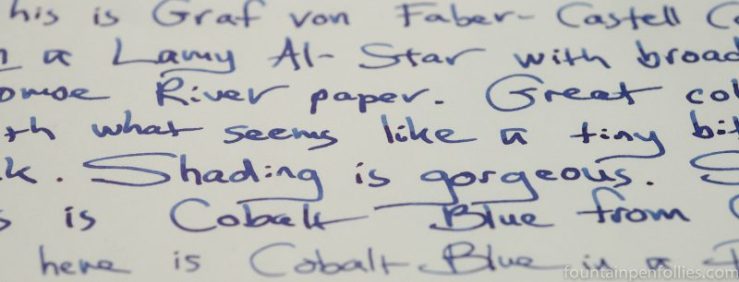 his is Graf von Faber-Castell Co
n a Lamy Al-Star with broad
omoe River paper. Great col
th what seems like a tiny bit
k. Shading is gorgeous. S
s is Cobalt Blue from
here is Cobalt Blue in a
fountainpenfollies.com